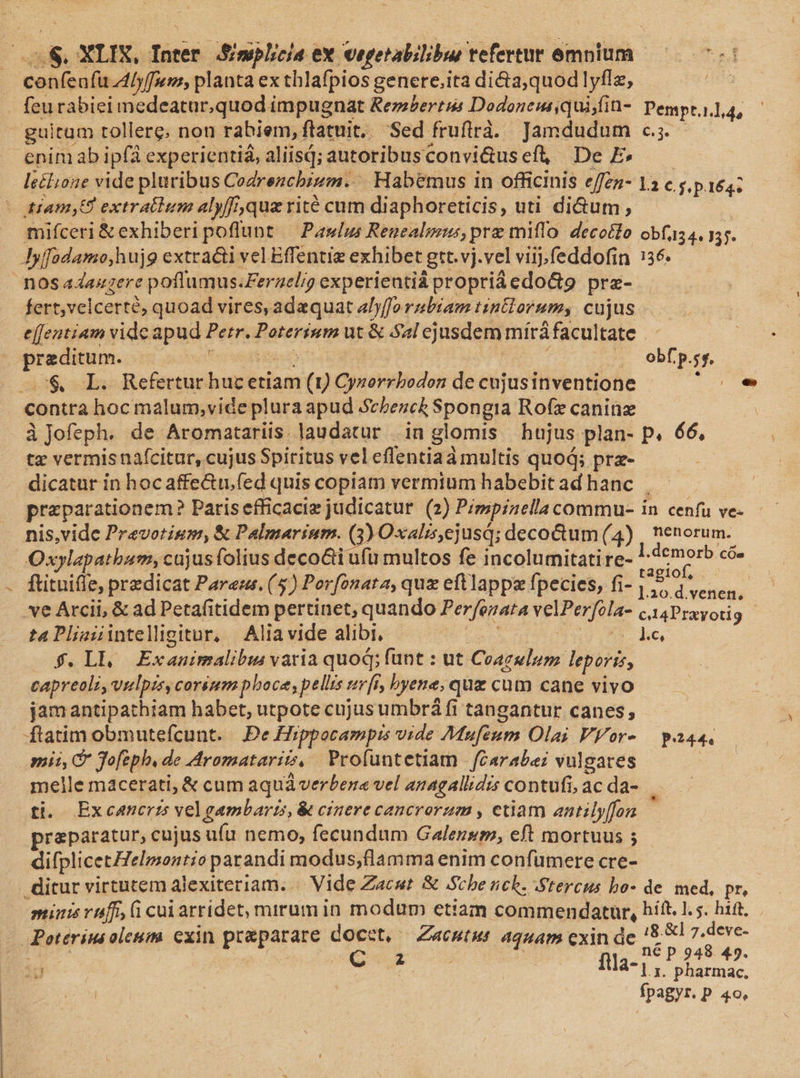 §. XLIX. Inter Simplicia ex vegetabilibus refertur omnium
conſenſu Alyſſum, planta ex thlaſpios genere,ita dicta,quod lyſſæ,
ſeu rabiei medeatur,quod impugnat Rembertus Dodoneus,qui,ſin- Pempt.1.l.4.
gultum tollere, non rabiem, ſtatuit. Sed fruſtrà. Jamdudum c.3.
enim ab ipſâ experientiâ, aliisq; autoribus convictus eſt. De E-
lectione vide pluribus Codronchium. Habemus in officinis eſſen- l.2 c.5.p.164.
tiam,& extractum alyſſi,quæ ritè cum diaphoreticis, uti dictum,
miſceri & exhiberi poſſunt Paulus Renealmus, præ miſſo decocto obſ.134. 135.
lyſſodamo,hujꝰ extracti vel Eſſentiæ exhibet gtt.vj.vel viij.ſeddoſin 136.
nos adaugere poſſumus.Fernelig experientiâ propriâ edoctꝰ præ-
fert,velcertè, quoad vires, adæquat alyſſo rubiam tinctorum, cujus
eſſentiam vide apud Petr. Poterium ut & Sal ejusdem mirâ facultate
præditum. obſ.p.55.
§. L. Refertur huc etiam (1) Cynorrhodon de cujus inventione
contra hoc malum,vide plura apud Schenck Spongia Roſæ caninæ
à Joſeph. de Aromatariis laudatur in glomis hujus plan- p. 66.
tæ vermis naſcitur, cujus Spiritus vel eſſentia à multis quoq; præ-
dicatur in hoc affectu,ſed quis copiam vermium habebit ad hanc
præparationem? Paris efficaciæ judicatur (2) Pimpinella commu- in cenſu ve-
nis,vide Prævotium, & Palmarium. (3) Oxalis,ejusq; decoctum (4) nenorum.
Oxylapathum, cujus folius decocti uſu multos ſe incolumitati re- l.demorb cō-
ſtituiſſe, prædicat Paræus. (5) Porſonata, quæ eſt lappæ ſpecies, ſi- tagioſ.
l.20.d.venen.
ve Arcii, & ad Petaſitidem pertinet, quando Perſonata vel Perſola- c.14Prævotiꝰ
ta Plinii intelligitur. Alia vide alibi. l.c.
§. LI. Ex animalibus varia quoq; ſunt : ut Coagulum leporis,
capreoli, vulpis, corium phocæ, pellis urſi, hyenæ, quæ cum cane vivo
jam antipathiam habet, utpote cujus umbrâ ſi tangantur canes,
ſtatim obmuteſcunt. De Hippocampis vide Muſeum Olai VVor- p.244.
mii, & Joſeph. de Aromatariis. Proſuntetiam ſcarabæi vulgares
melle macerati, & cum aquâ verbenæ vel anagallidis contuſi, ac da-
ti. Ex cancris vel gambaris, & cinere cancrorum, etiam antilyſſon
præparatur, cujus uſu nemo, ſecundum Galenum, eſt mortuus ;
diſplicet Helmontio parandi modus,flamma enim conſumere cre-
ditur virtutem alexiteriam. Vide Zacut & Schenck. Stercus ho- de med. pr.
minis ruffi, ſi cui arridet, mirum in modum etiam commendatur, hiſt. l.5. hiſt.
18.&l 7.deve-
Poterius oleum exin præparare docet, Zacutus aquam exin de né p 948 49.
C 2 ſtla-
l 1. pharmac.
ſpagyr. p 40.